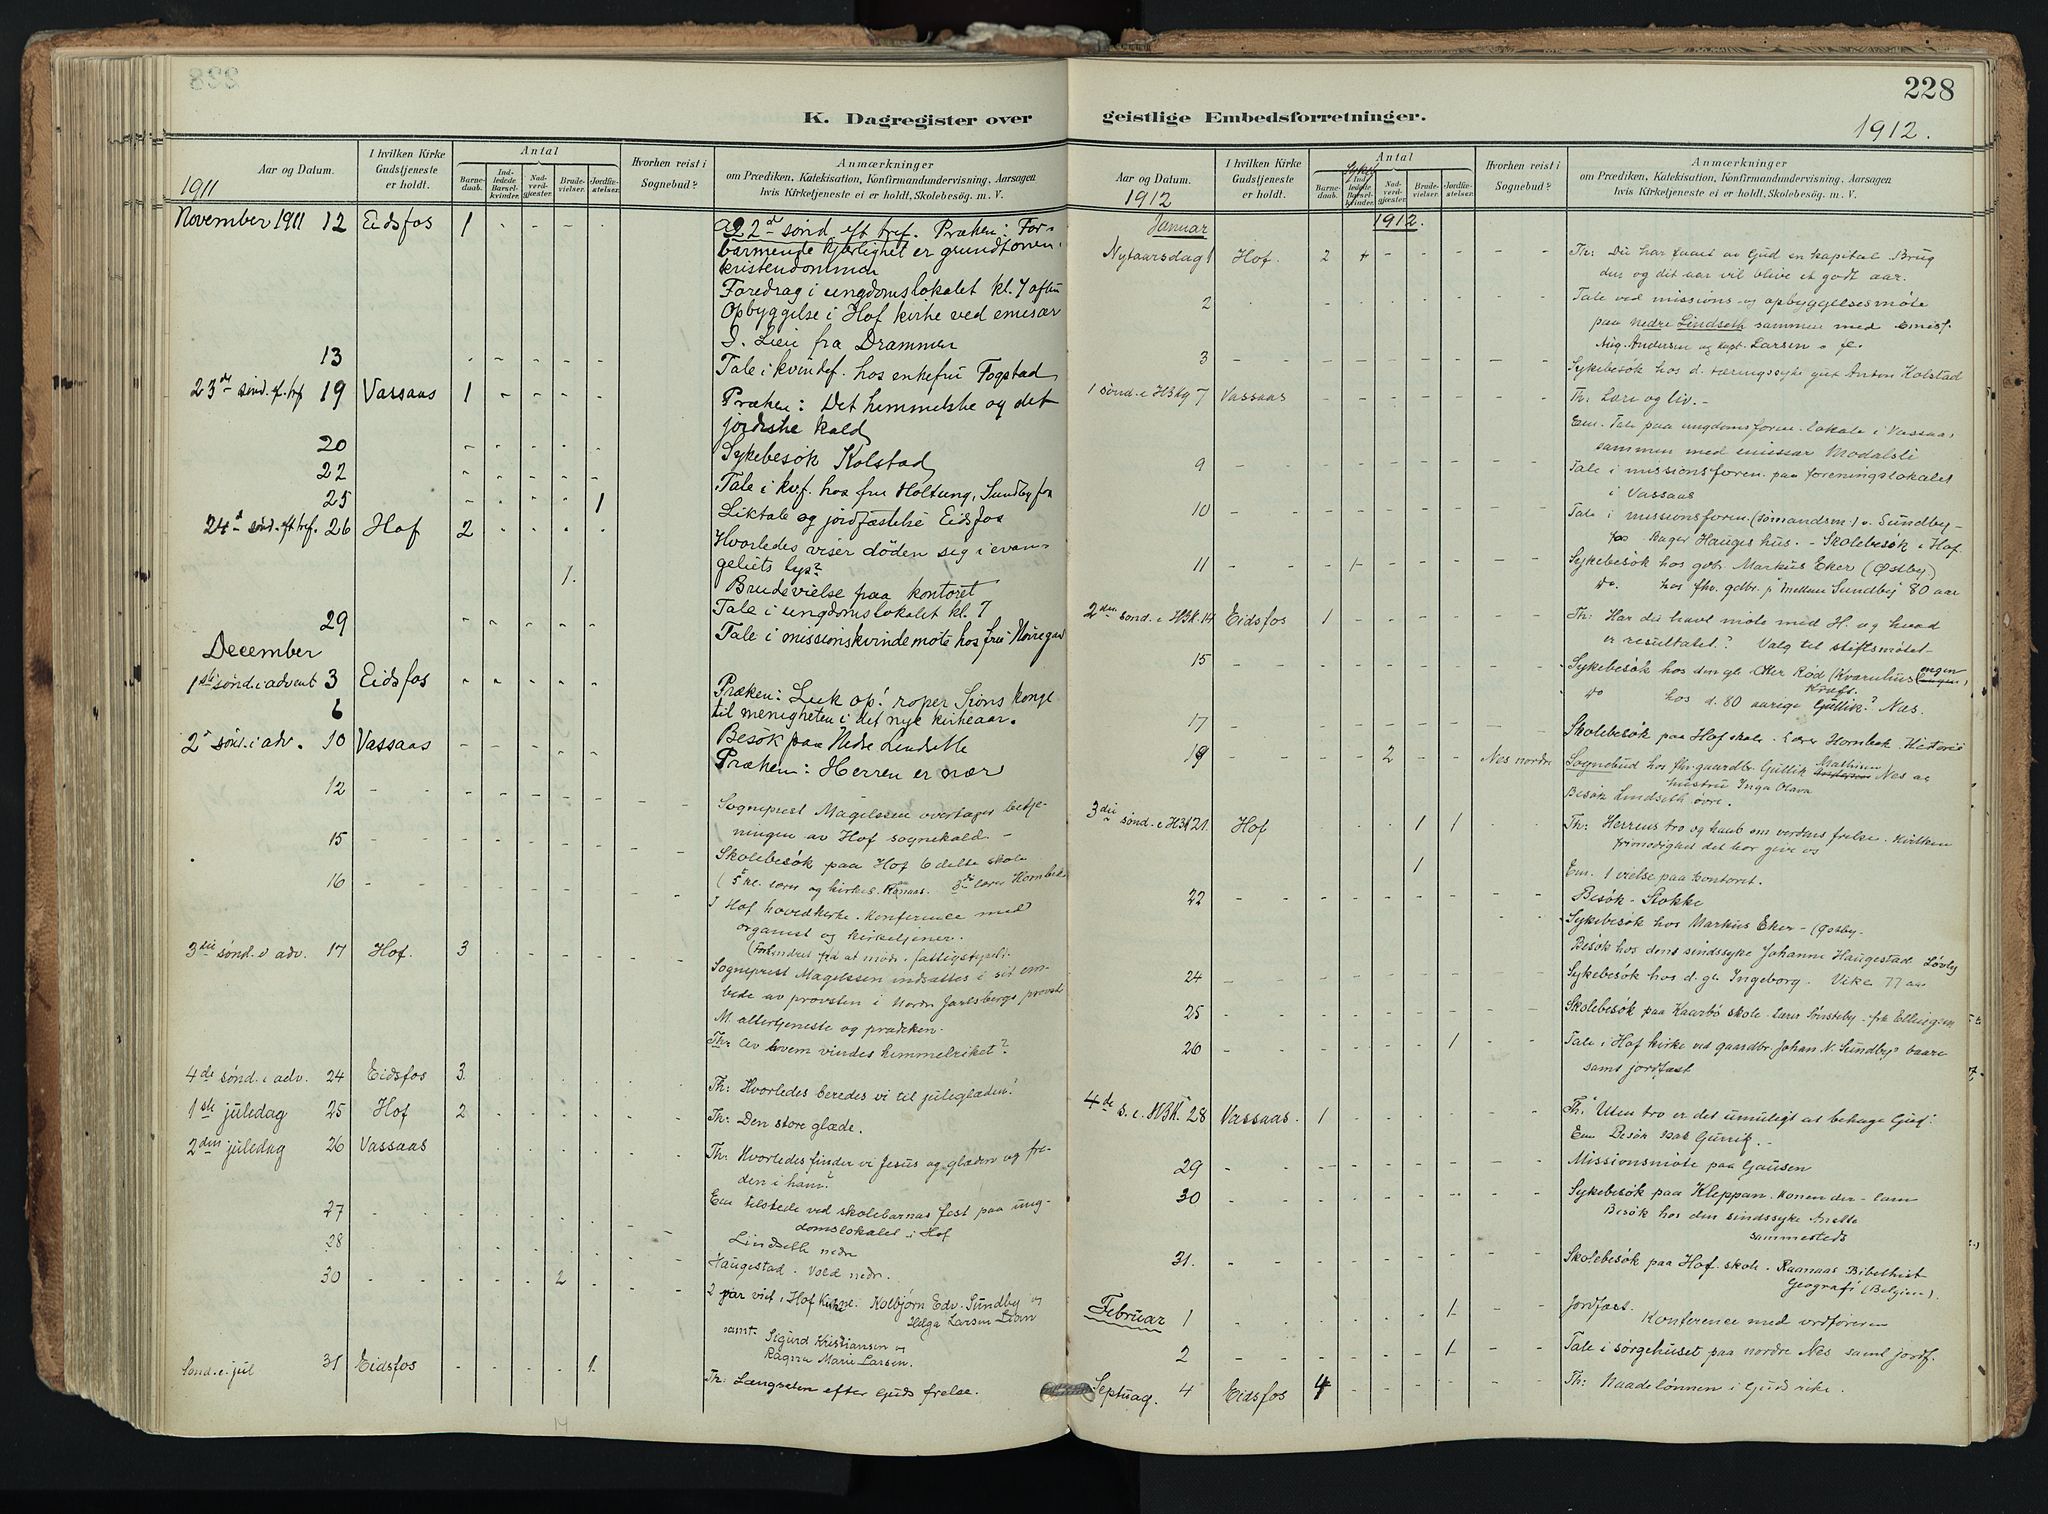 228
K. Dagregister over
Aar og Datum.
I hvilken Kirke Gudstjeneste er holdt.
Antal
Barnedaab.
Indledede Barselkvinder.
Nadverdgjæster.
Brudevielser.
Jordfæstelser.
Hvorhen reist i Sognebud?
Anmærkninger
om Prædiken, Katekisation, Konfirmandundervisning, Aarsagen
hvis Kirketjeneste ei er holdt, Skolebesøg. m. V.
1911
November 1911 12 Eidsfos 1 - - - -
22d sønd eft tref. Præken: For-
barmende kjærlighet er grundtonen i
kristendommen
Foredrag i ungdomslokalet kl. 7 aften
Opbyggelse i Hof kirke ved emisær
Lien fra Drammen
13
Tale i kvindef. hos enkefru Fogstad
23de sønd. ef. tref 19 Vassaas 1 - - - -
Præken: Det himmelske og det
jordiske kald
20
Sykebesøk Kolstad
22
Tale i kvf. hos fru Holtung, Sundbyfos
25 1
Liktale og jordfæstelse Eidsfos
24d sønd. eft tref. 26 Hof 2 - - -
Hvorledes viser døden sig i evan-
geliets lys?
1.
Brudevielse paa kontoret
Tale i ungdomslokalet kl. 7
29
Tale i missionskvindemøte hos fru
December
1ste sønd. i advent 3 Eidsfos
Præken: Luk op! roper Sions konge
til menigheten i det nye kirkeaar.
6
Besøk paa Nedre Lindseth
2d sønd. i adv. 10 Vassaas
Præken: Herren er nær
12
Sogneprest Magelssen overtager betje-
ningen av Hof sognekald. -
15
Skolebesøk paa Hof 6 delte skole
(5te kl. lærer og kirkes. Raanaas. 3de lærer Hornbek
16
I Hof hovedkirke. Konference med
organist og kirketjener.
(Forhindret fra at møde i fattigstyret).
3die sønd i adv. 17 Hof. 3
Sogneprest Magelssen indsættes i sit em-
bede av provsten i Nordre Jarlsbergs provsti
M. altertjeneste og prædiken.
Th: Av hvem vindes himmelriket?
4de sønd. i adv. 24 Eidsfos 3.
Th: Hvorledes beredes vi til juleglæden?
1ste juledag 25 Hof 2
Th: Den store glæde.
2den juledag 26 Vassaas
Th: Hvorledes finder vi Jesus og glæden og fre-
den i ham?
27
Em tilstede ved skolebarnas fest paa ung-
domslokalet i Hof
28
Lindseth nedre
30 2
Haugestad. Vold nedre.
2 par viet i Hof Kirke. Kolbjørn Edv. Sundby og
Helga Larsen Lien
samt Sigurd Kristiansen og
Ragna Marie Larsen.
Sønd. e. jul 31 Eidsfos 1.
Th: Længselen efter Guds frelse.
228
geistlige Embedsforretninger.
1912.
Aar og Datum.
I hvilken Kirke Gudstjeneste er holdt.
Antal
Barnedaab.
Indledede Barselkvinder.
Nadverdgjæster.
Brudevielser.
Jordfæstelser.
Hvorhen reist i Sognebud?
Anmærkninger
om Prædiken, Katekisation, Konfirmandundervisning, Aarsagen
hvis Kirketjeneste ei er holdt, Skolebesög. m. V.
1912
Januar 1912.
Nytaarsdag 1 Hof. 2
Th: Du har faaet av Gud en kapital. Brug
den og dit aar vil blive et godt aar.
2
Tale ved missions- og opbyggelsesmøte
paa Nedre Lindseth sammen med Emiss.
Aug. Andersen og kapt. Larsen o. fl.
3
Sykebesøk hos d. tæringssyke gut Anton Kolstad
1 sønd. e HBKg 7 Vassaas
Th: Lære og liv. -
Em. Tale paa ungdomsforen. lokale i Vassaas
sammen med emissær Modalsli
9
Tale i missionsforen. paa foreningslokalet
i Vassaas
10
Tale i missionsforen. (sømandsm.) v. Sundby-
fos Bager Hauges hus. - Skolebesøk i Hof.
11
Sykebesøk hos gbr. Markus Eker (Østby)
Do. hos fhv. gdbr. p. mellem Sundby 80 aar
2den sønd. e. HBK. 14 Eidsfos 1
Th: Har du havt møte med H. og hvad
er resultatet? Valg til stiftsmøtet
15
Sykebesøk hos den gl. Rød (Kvarnhus engen)
Do hos d. 80 aarige Gullik Næs.
17
Skolebesøk paa Hof skole. Lærer Hornbæk. Historie
19 2 Nes nordre
Sognebud hos fhv. gaardbr. Gullik Mathisen Nes og
hustru Inga Olava
Besøk Lindseth øvre.
3die sønd. e. HBK 21. Hof 1 1
Th: Herrens tro og haab om verdens frelse. Hvilken
frimodighet det bør give os
1
Em. 1 vielse paa kontoret.
22
Besøk - Stokke
Sykebesøk hos Markus Eker - (Østby.
Besøk hos den sindssyke Johanne Haugestad Løvby
24
Sykebesøk hos d. gl. Ingeborg. Vike 77 aar
25
Skolebesøk paa Kaarbø skole - lærer Sønsteby - frk Ellingsen
26 1
Tale i Hof kirke ved gaardbr. Johan N. Sundbys baare
samt jordfæst
4de s. e. HBK. 28 Vassaas. 1
Th: Uten tro er det umuligt at behage Gud.
Em Besøk Gunrik. -
29
Missionsmøte paa Gausen
30
Sykebesøk paa Kleppan. Konen der - lam
Besøk hos den sindssyke Anette
sammesteds
31.
Skolebesøk paa Hof. skole. Raanaas Bibelhist
Geografi (Belgien).
Februar 1 1
Jordfæst.
Konference med ordføreren
2 1
Tale i sørgehuset paa nordre Nes samt jordf.
Septuag. 4 Eidsfos 4
Th: Naadelønnen i Guds rike.